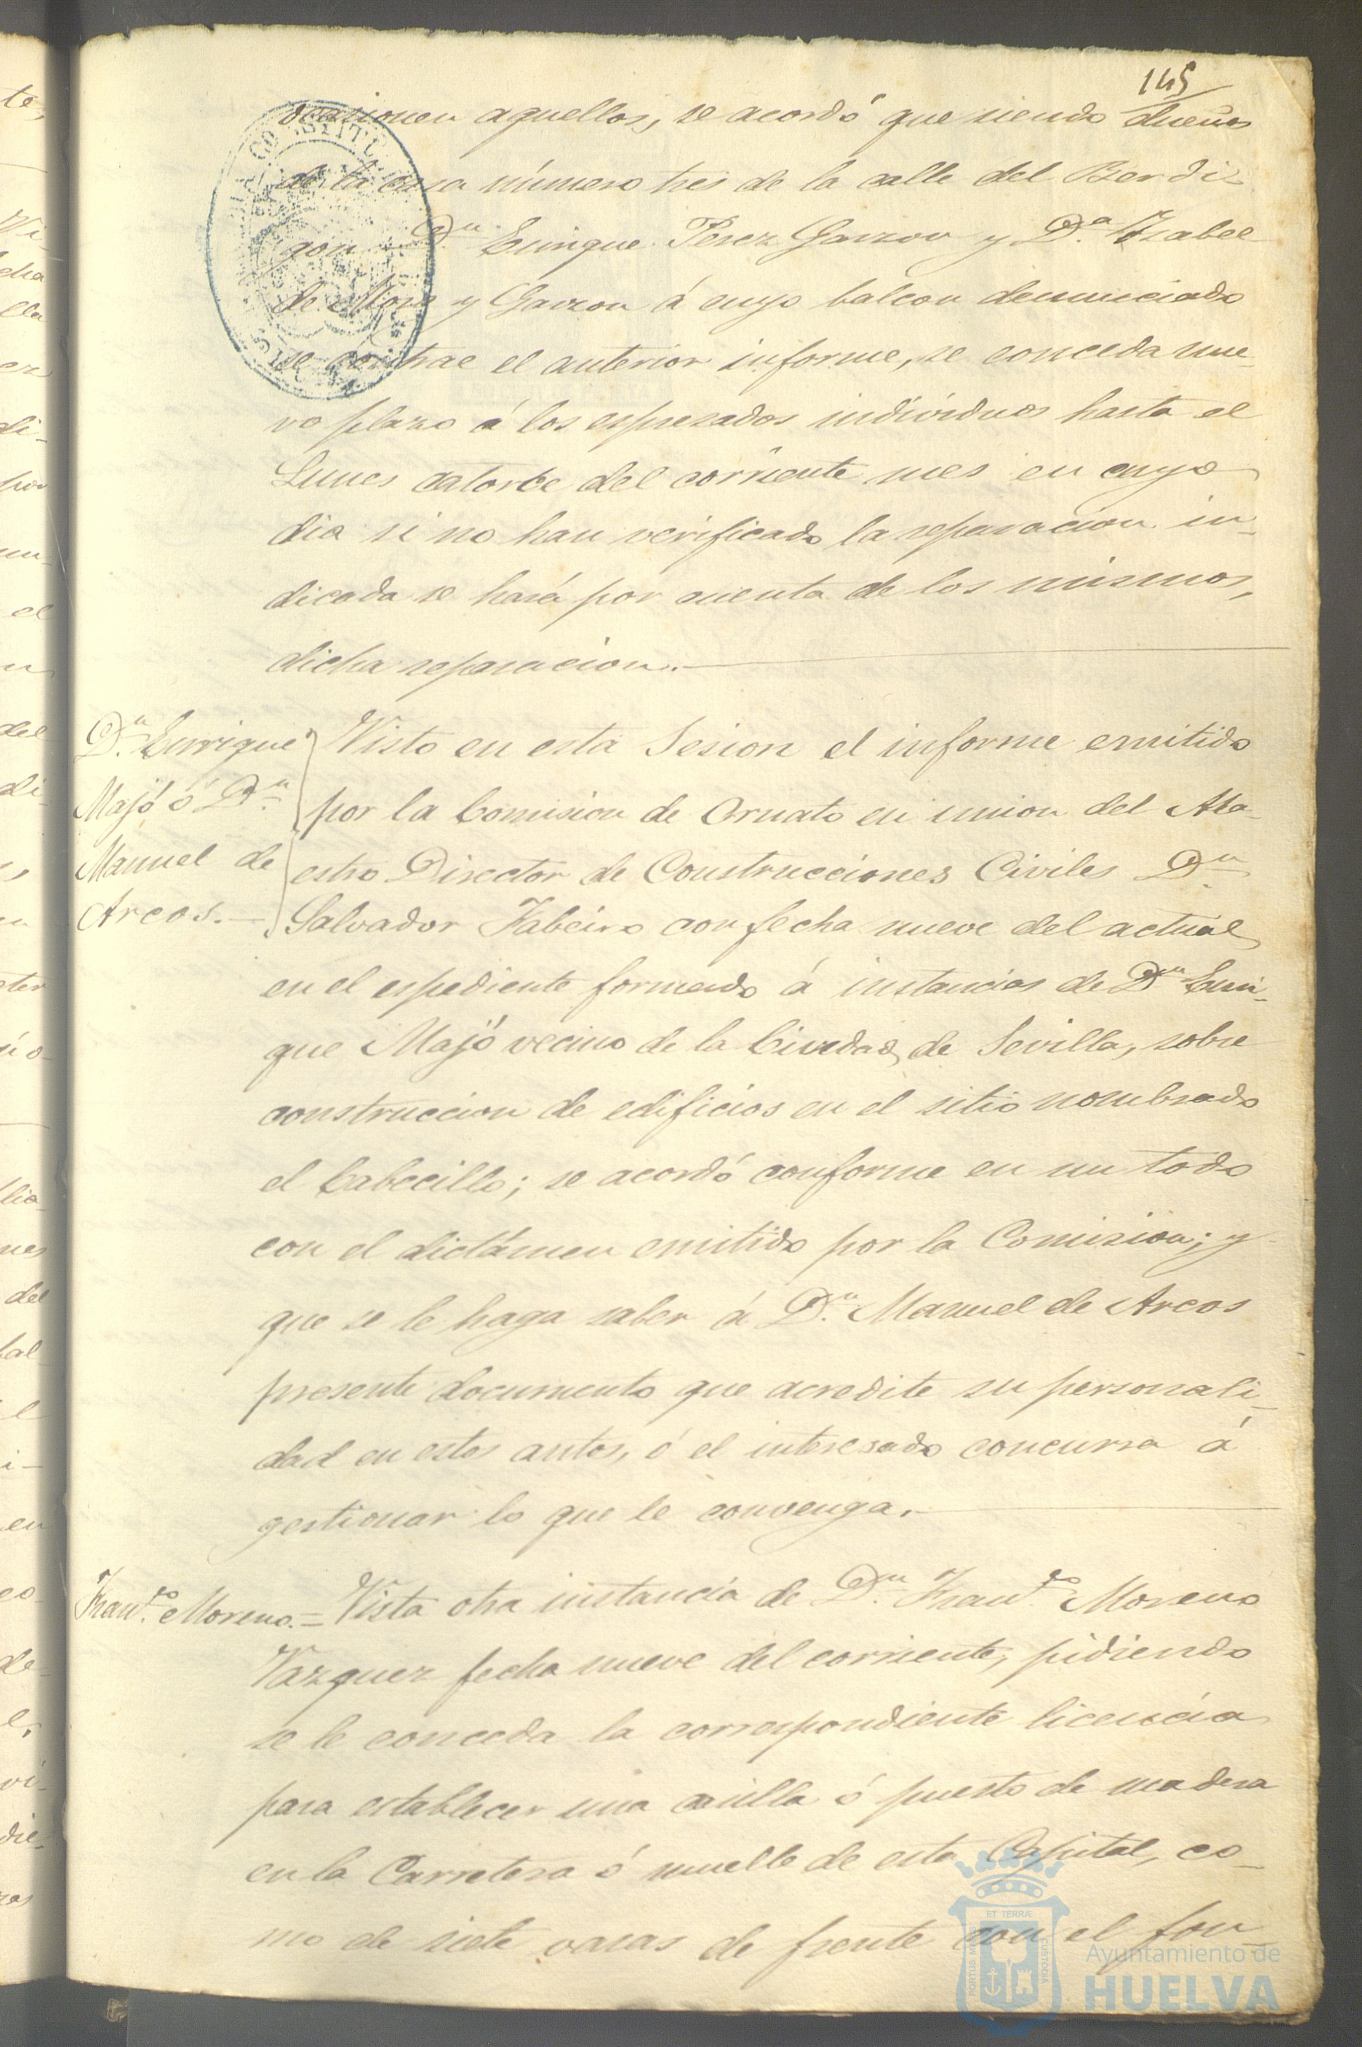 145
ocasionen aquellos, se acordó que siendo dueños
de la casa número tres de la calle del Berdi-
gon Dn Enrique Perez Garzon y Dª Isabel
de Mora y Garzon á cuyo balcon denunciado
se contrae el anterior informe, se conceda nue-
vo plazo á los espresados individuos hasta el
Lunes catorce del corriente mes en cuyo
dia si no han verificado la reparacion in-
dicada se hará por cuenta de los mismos,
dicha reparacion.—
Dn Enrrique
Majó ó Dn
Manuel de
Arcos.—
Visto en esta Sesion el informe emitido
por la Comision de Ornato en union del Ma-
estro Director de Construcciones Civiles Dn
Salvador Fabeiro con fecha nueve del actual
en el espediente formado á instancias de Dn Enri-
que Majó vecino de la Ciudad de Sevilla, sobre
construccion de edificios en el sitio nombrado
el Cabecillo; se acordó conforme en un todo
con el dictámen emitido por la Comision; y
que se le haga saber á Dn Manuel de Arcos
presente documento que acredite su personali-
dad en estos autos, ó el interesado concurra á
gestionar lo que le convenga.—
Franco Moreno.=
Vista otra instancia de Dn Franco Moreno
Vazquez fecha nueve del corriente, pidiendo
se le conceda la correspondiente licencia
para establecer una casilla ó puesto de madera
en la Carretera ó muelle de esta Capital, co-
mo de siete varas de frente con el fon-
Ayuntamiento de
HUELVA